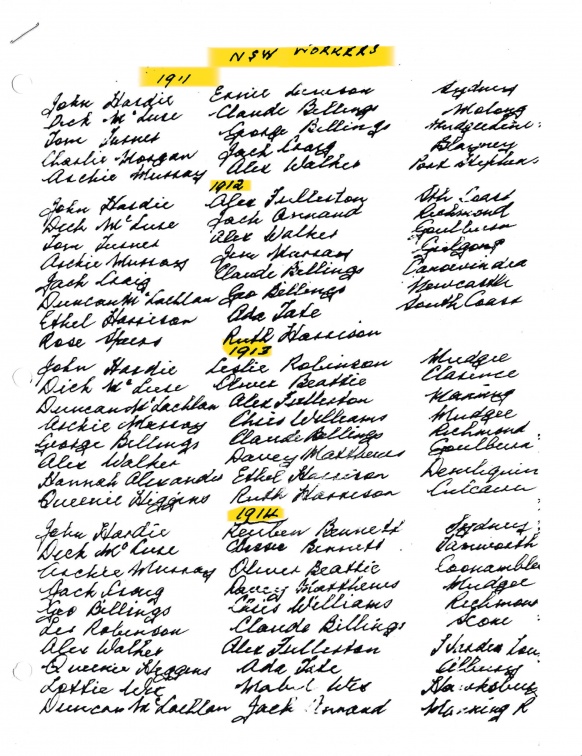 NSW WORKERS
1911
John Hardie Ernie Sydney
Dick McLuse Claude Billings Molong
Tom Turner George Billings
Charlie Morgan Jack Craig Blayney
Archie Murray Alex Walker Port Stephens
1912
John Hardie Alex Fullerton Nth Coast
Dick McLuse Jack Annand Richmond
Tom Turner Alex Walker Goulburn
Archie Murray Jim Murray Gulgong
Jack Craig Claude Billings Canowindra
Duncan McLachlan Geo Billings Newcastle
Ethel Harrison Ada Tate South Coast
Rose Speers Ruth Harrison
1913
John Hardie Leslie Robinson Mudgee
Dick McLuse Oliver Beattie Clarence
Duncan McLachlan Alex Fullerton Manning
Archie Murray Chris Williams Mudgee
George Billings Claude Billings Richmond
Alex Walker Davey Matthews Goulburn
Hannah Alexander Ethel Harrison Deniliquin
Queenie Higgins Ruth Harrison Culcairn
1914
John Hardie Reuben Bennett Sydney
Dick McLuse Bennett Tamworth
Archie Murray Oliver Beattie Coonamble
Jack Craig Davey Matthews Mudgee
Geo Billings Chris Williams Richmon
Les Robinson Claude Billings Scone
Alex Walker Alex Fullerton
Queenie Higgins Ada Tate
Lottie Mabel Hawkesbury
Duncan McLachlan Jack Annand Manning R